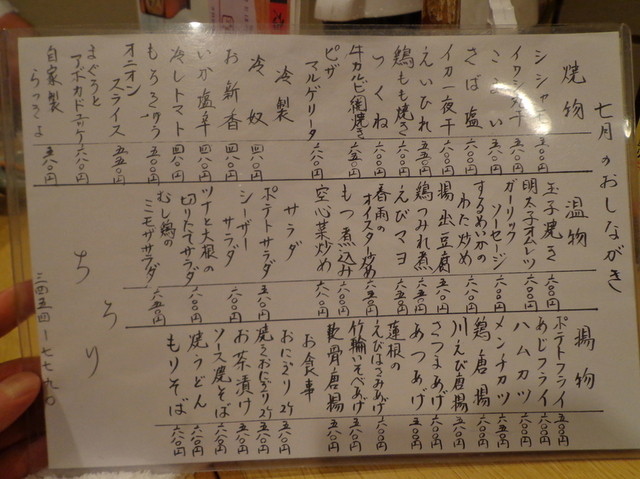 七月のおしながき
焼物
シシャモ 五〇〇円
イワシ丸干 五〇〇円
こまい 五〇〇円
さば塩 六〇〇円
イカ一夜干 六〇〇円
えいひれ 五五〇円
鶏もも焼き 六〇〇円
つくね
牛カルビ網焼き 六五〇円
ピザ
マルゲリータ 六〇〇円
冷製
冷奴 四〇〇円
お新香 四〇〇円
いか塩辛 四〇〇円
冷しトマト 四〇〇円
もろきゅう 五〇〇円
オニオン
スライス 五五〇円
まぐろと
アボカドユッケ 六八〇円
自家製
らっきょ 五〇〇円
温物
玉子焼き 六〇〇円
明太子オムレツ 六〇〇円
ガーリック
ソーセージ 六〇〇円
するめいかの
わた炒め 六〇〇円
揚出豆腐 六〇〇円
鶏つみれ煮 六五〇円
えびマヨ 六五〇円
春雨の
オイスター炒め 五五〇円
もつ煮込み 六〇〇円
空心菜炒め 六八〇円
サラダ
ポテトサラダ 五〇〇円
シーザー
サラダ 六〇〇円
ツナと大根の
切りたてサラダ 六〇〇円
むし鶏の
ミモザサラダ 六五〇円
揚物
ポテトフライ 五〇〇円
あじフライ 六〇〇円
ハムカツ 六〇〇円
メンチカツ 六五〇円
鶏唐揚 六〇〇円
川えび唐揚 五五〇円
さつまあげ 六〇〇円
あつあげ 五五〇円
蓮根の
えびはさみあげ 六八〇円
竹輪いそべあげ 五五〇円
軟骨唐揚 五五〇円
お食事
おにぎり
焼きおにぎり
お茶漬け 五五〇円
ソース焼そば 六〇〇円
焼うどん 六〇〇円
もりそば 六〇〇円
ちろり
三四五四-七七九〇